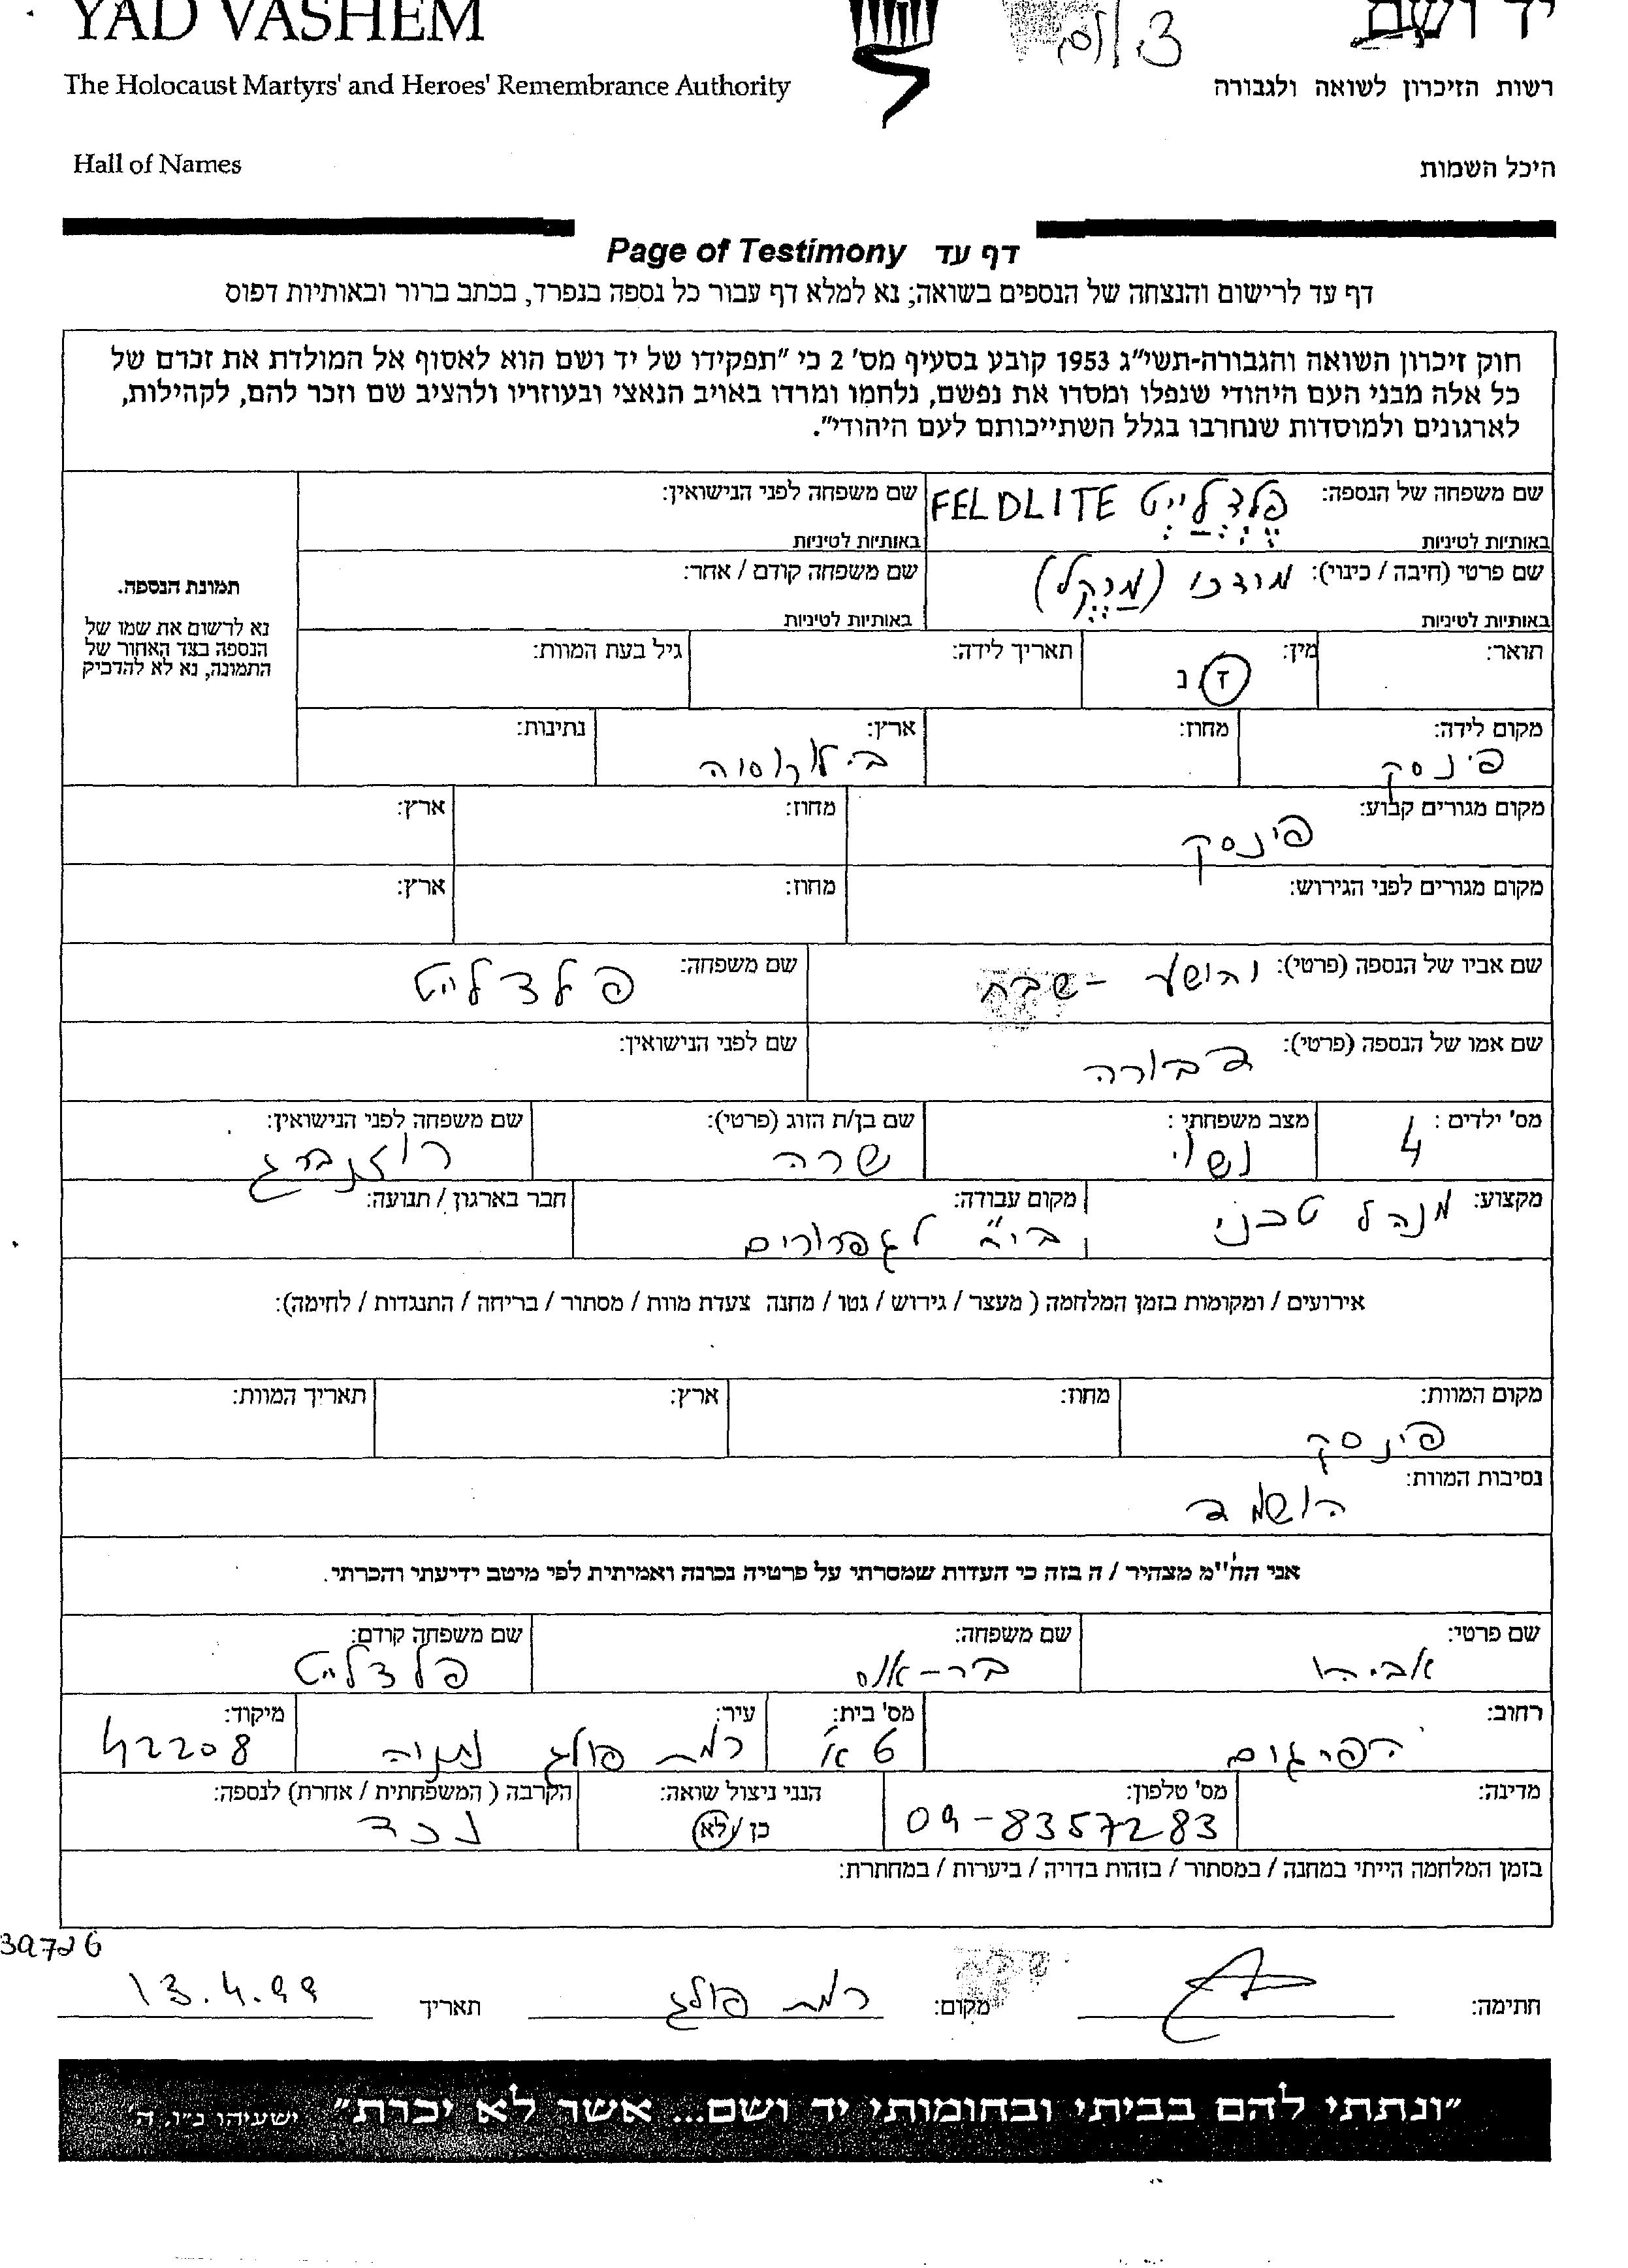 YAD VASHEM
יד ושם
The Holocaust Martyrs' and Heroes' Remembrance Authority
רשות הזיכרון לשואה ולגבורה
Hall of Names
היכל השמות
Page of Testimony דף עד
דף עד לרישום והנצחה של הנספים בשואה; נא למלא דף עבור כל נספה בנפרד, בכתב ברור ובאותיות דפוס
חוק זיכרון השואה והגבורה-תשי"ג 1953 קובע בסעיף מס' 2 כי "תפקידו של יד ושם הוא לאסוף אל המולדת את זכרם של
כל אלה מבני העם היהודי שנפלו ומסרו את נפשם, נלחמו ומרדו באויב הנאצי ובעוזריו ולהציב שם וזכר להם, לקהילות,
לארגונים ולמוסדות שנחרבו בגלל השתייכותם לעם היהודי".
שם משפחה של הנספה: פלדלייט FELDLITE שם משפחה לפני הנישואין:
באותיות לטיניות באותיות לטיניות
שם פרטי (חיבה / כינוי): מורדכי (מרקל) שם משפחה קודם / אחר:
באותיות לטיניות באותיות לטיניות
תמונת הנספה.
נא לרשום את שמו של
הנספה בצד האחור של
התמונה, נא לא להדביק
תואר: מין: ז/נ תאריך לידה: גיל בעת המוות:
מקום לידה: מחוז: ארץ: נתינות:
פינסק בילורוסיה
מקום מגורים קבוע: מחוז: ארץ:
פינסק
מקום מגורים לפני הגירוש: מחוז: ארץ:
שם אביו של הנספה (פרטי): יהושע - שבח שם משפחה: פלדלייט
שם אמו של הנספה (פרטי): דבורה שם לפני הנישואין:
מס' ילדים: 4 מצב משפחתי: שם בן/ת הזוג (פרטי): שם משפחה לפני הנישואין:
נשוי שרה רוזנברג
מקצוע: מנהל טכני מקום עבודה: חבר בארגון / תנועה:
ביח" לגפרורים
אירועים / ומקומות בזמן המלחמה ( מעצר / גירוש / גטו / מחנה צעדת מוות / מסתור / בריחה / התנגדות / לחימה):
מקום המוות: מחוז: ארץ: תאריך המוות:
פינסק
נסיבות המוות:
הושמד
אני הח"מ מצהיר / ה בזה כי העדות שמסרתי על פרטיה נכונה ואמיתית לפי מיטב ידיעתי והכרתי.
שם פרטי: שם משפחה: שם משפחה קודם:
אביהו בר-און פלדלייט
רחוב: מס' בית: עיר: מיקוד:
6 א' רמת פולג נתניה 42208
מדינה: מס' טלפון: הנני ניצול שואה: הקרבה ( המשפחתית / אחרת) לנספה:
09-8357283 כן / לא נכד
בזמן המלחמה הייתי במחנה / במסתור / בזהות בדויה / ביערות / במחתרת:
39726
חתימה: מקום: רמת פולג תאריך 13.4.99
"ונתתי להם בביתי ובחומותי יד ושם... אשר לא יכרת" ישעיהו נ"ו, ה'